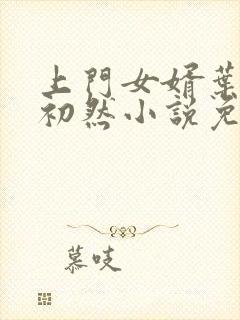 上門女婿葉
初然小説免
慕吱